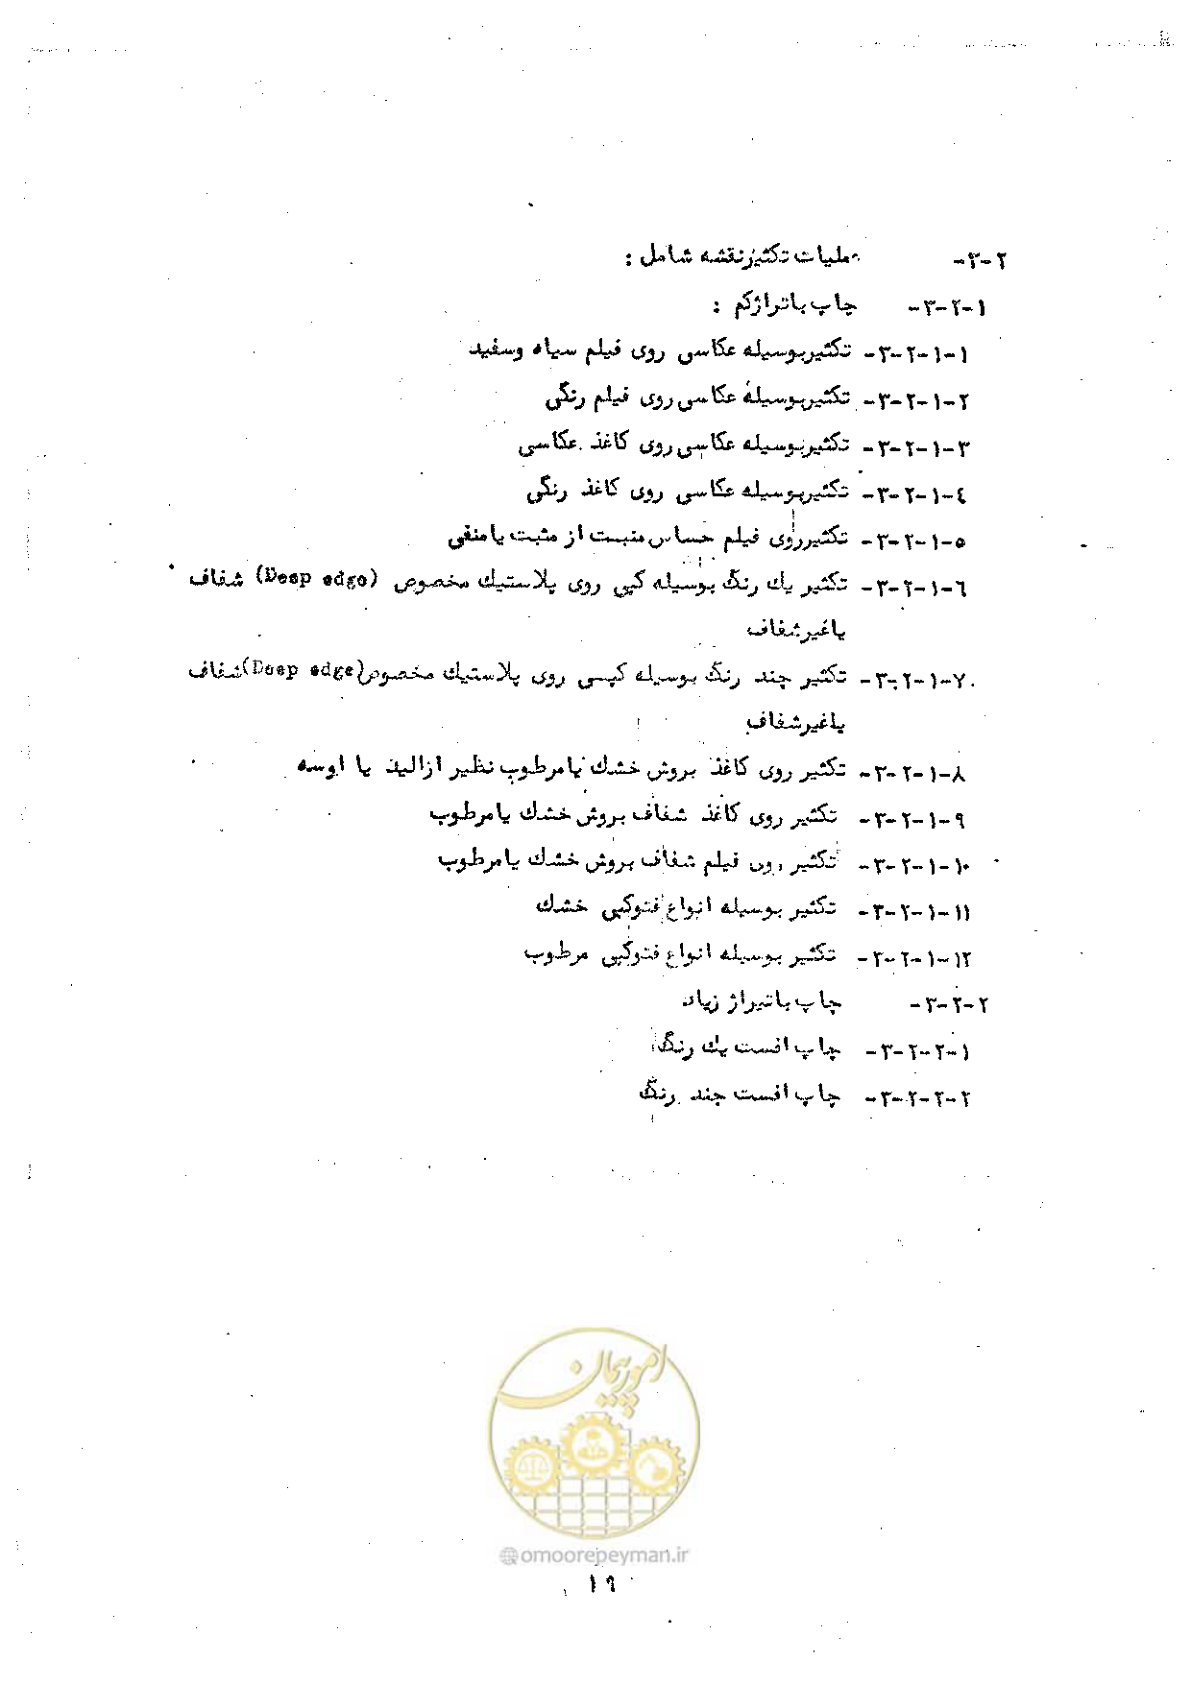 ۳-۲- عملیات تکثیرنقشه شامل :
۳-۲-۱- چاپ باتراژکم :
۳-۲-۱-۱- تکثیربوسیله عکاسی روی فیلم سیاه وسفید
۳-۲-۱-۲- تکثیربوسیله عکاسی روی فیلم رنگی
۳-۲-۱-۳- تکثیربوسیله عکاسی روی کاغذ عکاسی
۳-۲-۱-٤- تکثیربوسیله عکاسی روی کاغذ رنگی
۳-۲-۱-٥- تکثیرروی فیلم حساس مثبت از مثبت یامنفی
۳-۲-۱-٦- تکثیر یك رنگ بوسیله کپی روی پلاستیك مخصوص (Deep edge) شفاف
یاغیرشفاف
۳-۲-۱-۷- تکثیر چند رنگ بوسیله کپی روی پلاستیك مخصوص(Deep edge)شفاف
یاغیرشفاف
۳-۲-۱-۸- تکثیر روی کاغذ بروش خشك یامرطوب نظیر ازالیذ یا اوسه
۳-۲-۱-۹- تکثیر روی کاغذ شفاف بروش خشك یامرطوب
۳-۲-۱-۱۰- تکثیر روی فیلم شفاف بروش خشك یامرطوب
۳-۲-۱-۱۱- تکثیر بوسیله انواع فتوکپی خشك
۳-۲-۱-۱۲- تکثیر بوسیله انواع فتوکپی مرطوب
۳-۲-۲- چاپ باتیراژ زیاد
۳-۲-۲-۱- چاپ افست یك رنگ
۳-۲-۲-۲- چاپ افست چند رنگ
امور پیمان
@omoorepeyman.ir
۱۹